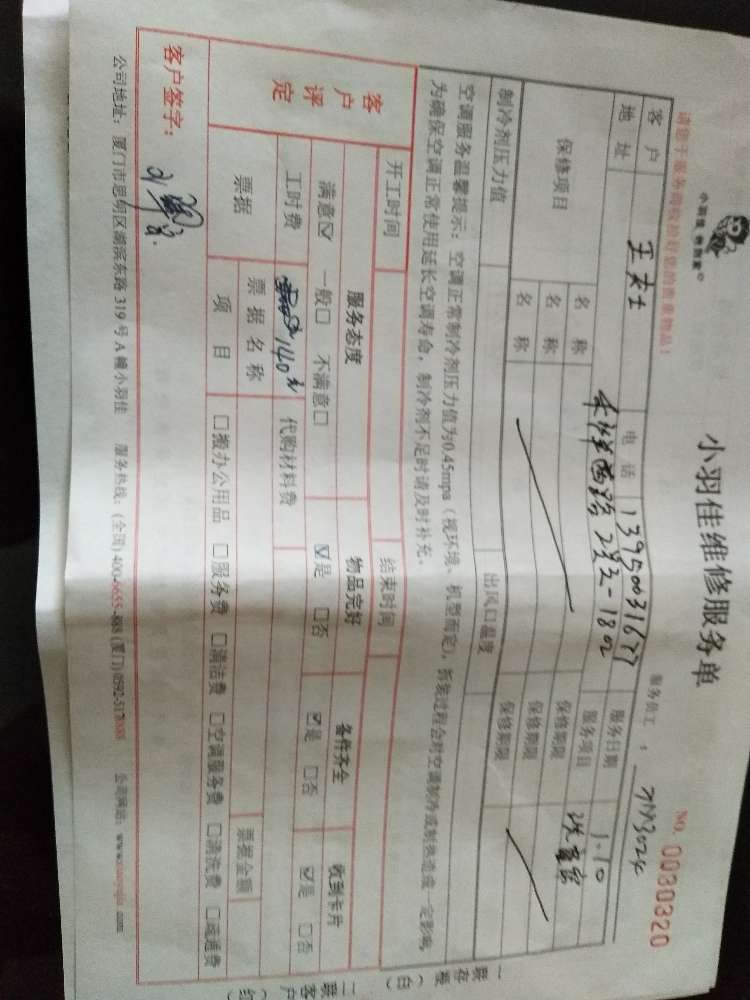 小羽佳维修服务单
NO. 0030320
服务员工：
请您于服务前收拾好您的贵重物品！
客户 王女士 电话 13950031677 服务日期 1.10
地址 服务项目
保修项目 名称 保修期限
名称 保修期限
名称 保修期限
制冷剂压力值 出风口温度
空调服务温馨提示：空调正常制冷剂压力值为0.45mpa（视环境、机型而定），拆装过程会对空调制冷或制热造成一定影响，
为确保空调正常使用延长空调寿命，制冷剂不足时请及时补充。
开工时间 结束时间
客户评定 服务态度 物品完好 备件齐全 收到卡片
满意☑ 一般□ 不满意□ ☑是 □否 ☑是 □否 ☑是 □否
工时费 140元 代购材料费
票据 票据名称 票据金额
项目 □搬办公用品 □服务费 □清洁费 □空调服务费 □清洗费 □疏通费
客户签字：
公司地址：厦门市思明区湖滨东路319号A幢小羽佳 服务热线：(全国) 400-6655-888 (厦门) 0592-5178888 公司网站：
一联存根（白）
二联客户（红）